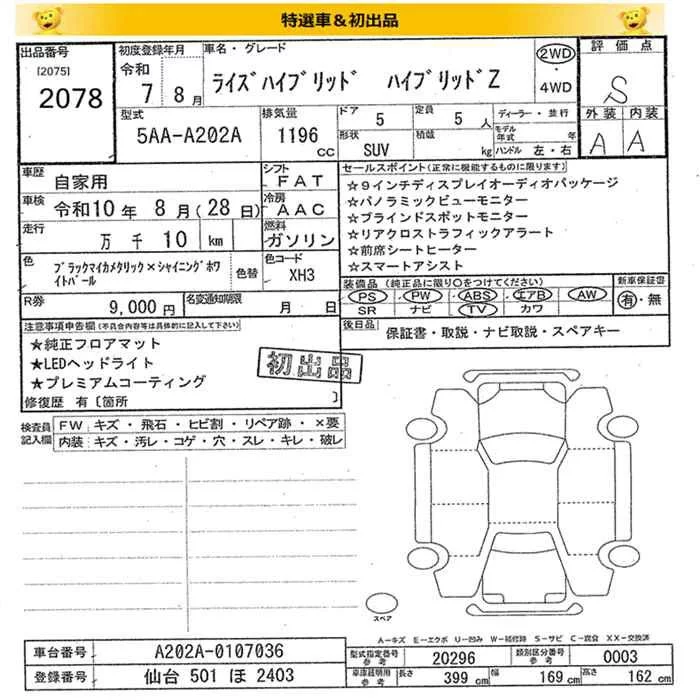 特選車＆初出品
出品番号
[2075]
2078
初度登録年月
令和
7 8月
車名・グレード
ﾗｲｽﾞﾊｲﾌﾞﾘｯﾄﾞ ﾊｲﾌﾞﾘｯﾄﾞZ
2WD
・
4WD
評価点
S
外装 内装
A A
型式
5AA-A202A
排気量
1196
cc
ドア
5
定員
5 人
形状
SUV
積載
kg
ディーラー・並行
モデル年式 年
ハンドル 左・右
車歴
自家用
車検 令和10年 8月(28日)
走行
万 千 10 km
シフト
FAT
冷房
AAC
燃料
ガソリン
色
ﾌﾞﾗｯｸﾏｲｶﾒﾀﾘｯｸ×ｼｬｲﾆﾝｸﾞﾎﾜ
ｲﾄﾊﾟｰﾙ
色替
色コード
XH3
R券
9,000円
名変通知期限
月 日
セールスポイント(正常に機能するものに限ります)
☆９インチディスプレイオーディオパッケージ
☆パノラミックビューモニター
☆ブラインドスポットモニター
☆リアクロストラフィックアラート
☆前席シートヒーター
☆スマートアシスト
装備品(純正品に限り○をつけてください)
PS PW ABS エアB AW
SR ナビ TV カワ
新車保証書
有・無
後日品
保証書・取説・ナビ取説・スペアキー
注意事項申告欄(不具合内容等は具体的に記入して下さい)
★純正フロアマット
★LEDヘッドライト
★プレミアムコーティング
初出品
修復歴 有〔箇所 〕
検査員
記入欄
FW: キズ・飛石・ヒビ割・リペア跡・×要
内装: キズ・汚レ・コゲ・穴・スレ・キレ・破レ
スペア
A－キズ E－エクボ U－凹み W－補修跡 S－サビ C－腐食 XX－交換済
車台番号 A202A-0107036
登録番号 仙台 501 ほ 2403
型式指定番号
参考
20296
類別区分番号
参考
0003
車庫証明用
参考
長さ 399 cm 幅 169 cm 高さ 162 cm